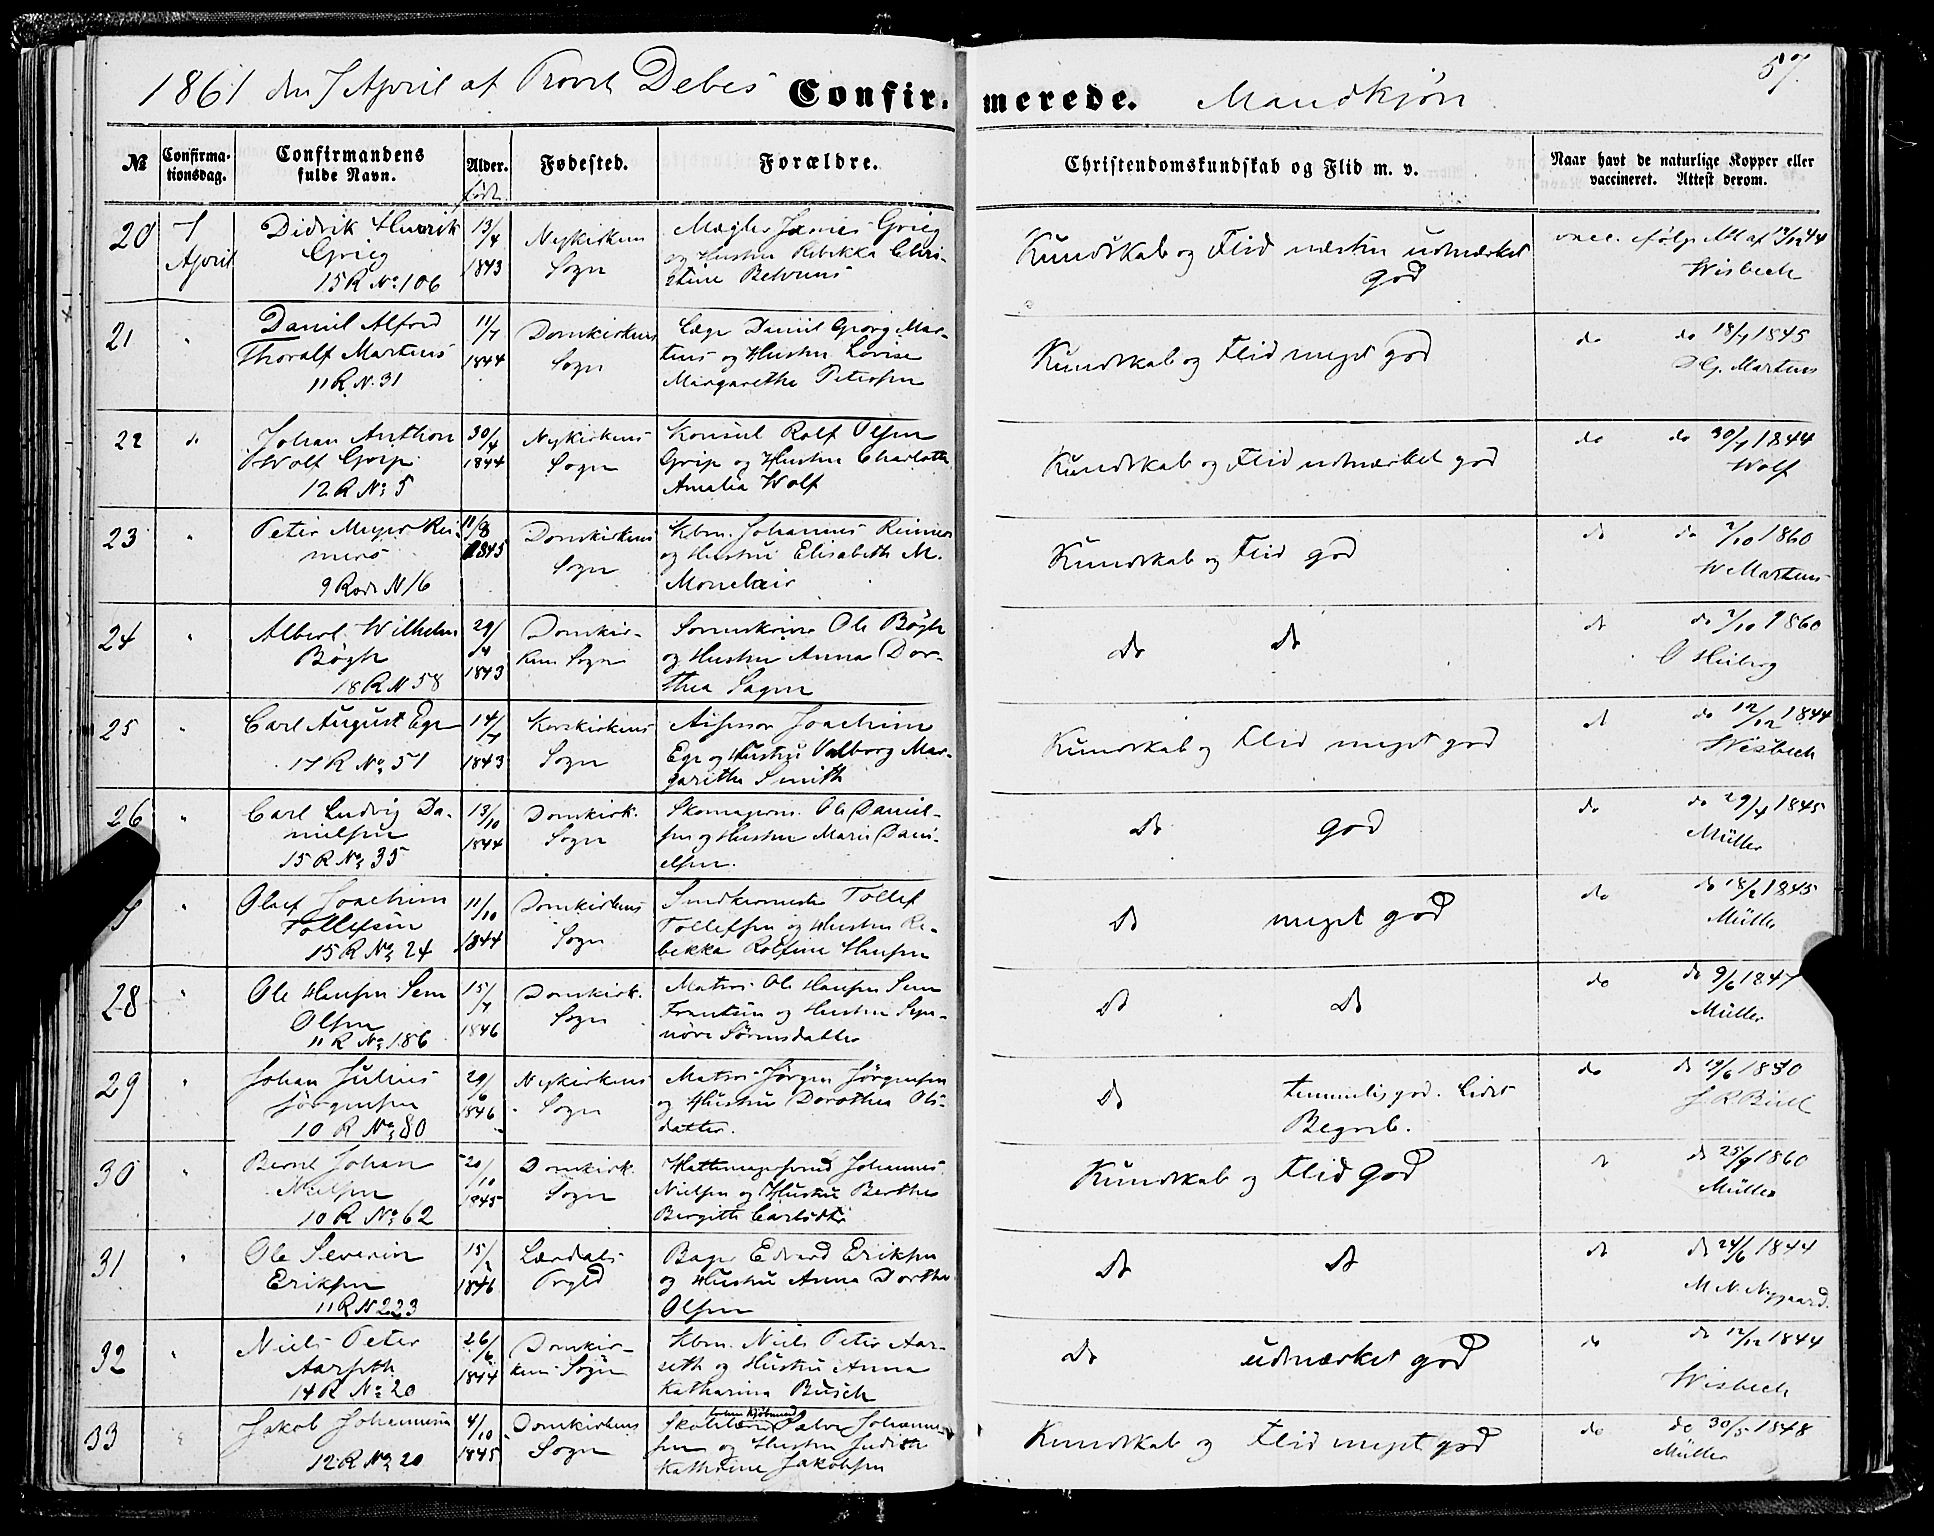 1861 den 7 April af Provst Debes Confir- merede. Mandkjøn 57.
№ Confirma-tionsdag. Confirmandens fulde Navn. Alder. født Fødested. Forældre. Christendomskundskab og Flid m. v. Naar havt de naturlige Kopper eller vaccineret. Attest derom.
20 7 April Didrik Henrik Grieg 15 R No: 106
13/4 1843
Nykirkens Sogn
Mægler James Grieg
og Hustru Rebekka Chri-
stine Behrens
Kundskab og Flid næsten udmærket god
vacc. ifølge Att af 12/12 44
Wisbech
21 " Daniel Alfred
Thoralf Martens
11 R N. 31
11/7 1844
Domkirkens Sogn
Læge Daniel Georg Mar-
tens og Hustru Lovise
Margarethe Petersen
Kundskab og Flid meget god
do do 18/7 1845
D G. Martens
22 do Johan Anthon
Wolf Grip
12 R No 5
30/4 1844
Nykirkens Sogn
Konsul Rolf Olsen
Grip og Hustru Charlotte
Amalia Wolf
Kundskab og Flid udmærket god
do do 30/7 1844
Wolf
23 " Peter Meyer Rei-
mers
9 Rode N 16
11/8 1845
Domkirkens Sogn
Kbm. Johannes Reimers
og Hustru Elisabeth M.
Monclair
Kundskab og Flid god
do do 2/10 1860
W Martens
24 " Albert Wilhelm
Bøgh
18 R N 58
29/4 1843
Domkir-
kens Sogn
Sorenskriver Ole Bøgh
og Hustru Anna Dor-
thea Sagen
do do
do do 2/10 1860
O Heiberg
25 " Carl August Ege
17 R No. 51
14/4 1843
Korskirkens Sogn
Assessor Joachim
Ege og Hustru Valborg Mar-
garethe Smith
Kundskab og Flid meget god
do do 12/12 1844
Wisbech
26 " Carl Ludvig Da-
nielsen
15 R No 35
13/10 1844
Domkirk. Sogn
Skomagersv. Ole Daniel-
sen og Hustru Maria Dani-
elsen.
do god
do do 29/4 1845
Müller
7 " Oluf Joachim
Tollefsen
15 R No 24
11/10 1844
Domkirkens Sogn
Snedkermester Tollef
Tollefsen og Hustru Re-
bekka Rolfine Hansen
do meget god
do do 18/2 1845
Müller
28 " Ole Hansen Sem
Olsen
11 R No 186
15/7 1846
Domkirk. Sogn
Matros Ole Hansen Sem
Frantsen og Hustru Syn-
nøve Sørensdatter
do do
do do 9/6 1847
Müller
29 " Johan Julius
Jørgensen
10 R No 80
29/6 1846
Nykirkens Sogn
Matros Jørgen Jørgensen
og Hustru Dorothea Ols-
datter.
do temmelig god. Lidet
Begreb.
do do 19/6 1850
30 " Bernt Johan
Nielsen
10 R No 62
20/10 1845
Domkirk. Sogn
Hattemagersvend Johannes
Nielsen og Hustru Berthe
Birgitte Carlsdtr
Kundskab og Flid god
do do 25/9 1860
Müller
31 " Ole Severin
Eriksen
11 R N 223
15/2 1846
Lærdals Prgld
Bager Edvard Eriksen
og Hustru Anna Dorthea
Olsen
do do
do do 24/6 1844
M N. Nygaard.
32 " Niels Peter
Aarseth
14 R No 20
26/6 1844
Domkir-
kens Sogn
Kbm. Niels Peter Aar-
seth og Hustru Anna
Katharina Busch
do udmærket god
do do 12/12 1844
Wisbech
33 " Jakob Johannesen
12 R No 20
4/10 1845
Domkirkens Sogn
Skolelærer Salve Johanne-
sen og Hustru Judith
Kathrine Jakobsen
Kundskab og Flid meget god
do do 30/5 1848
Müller